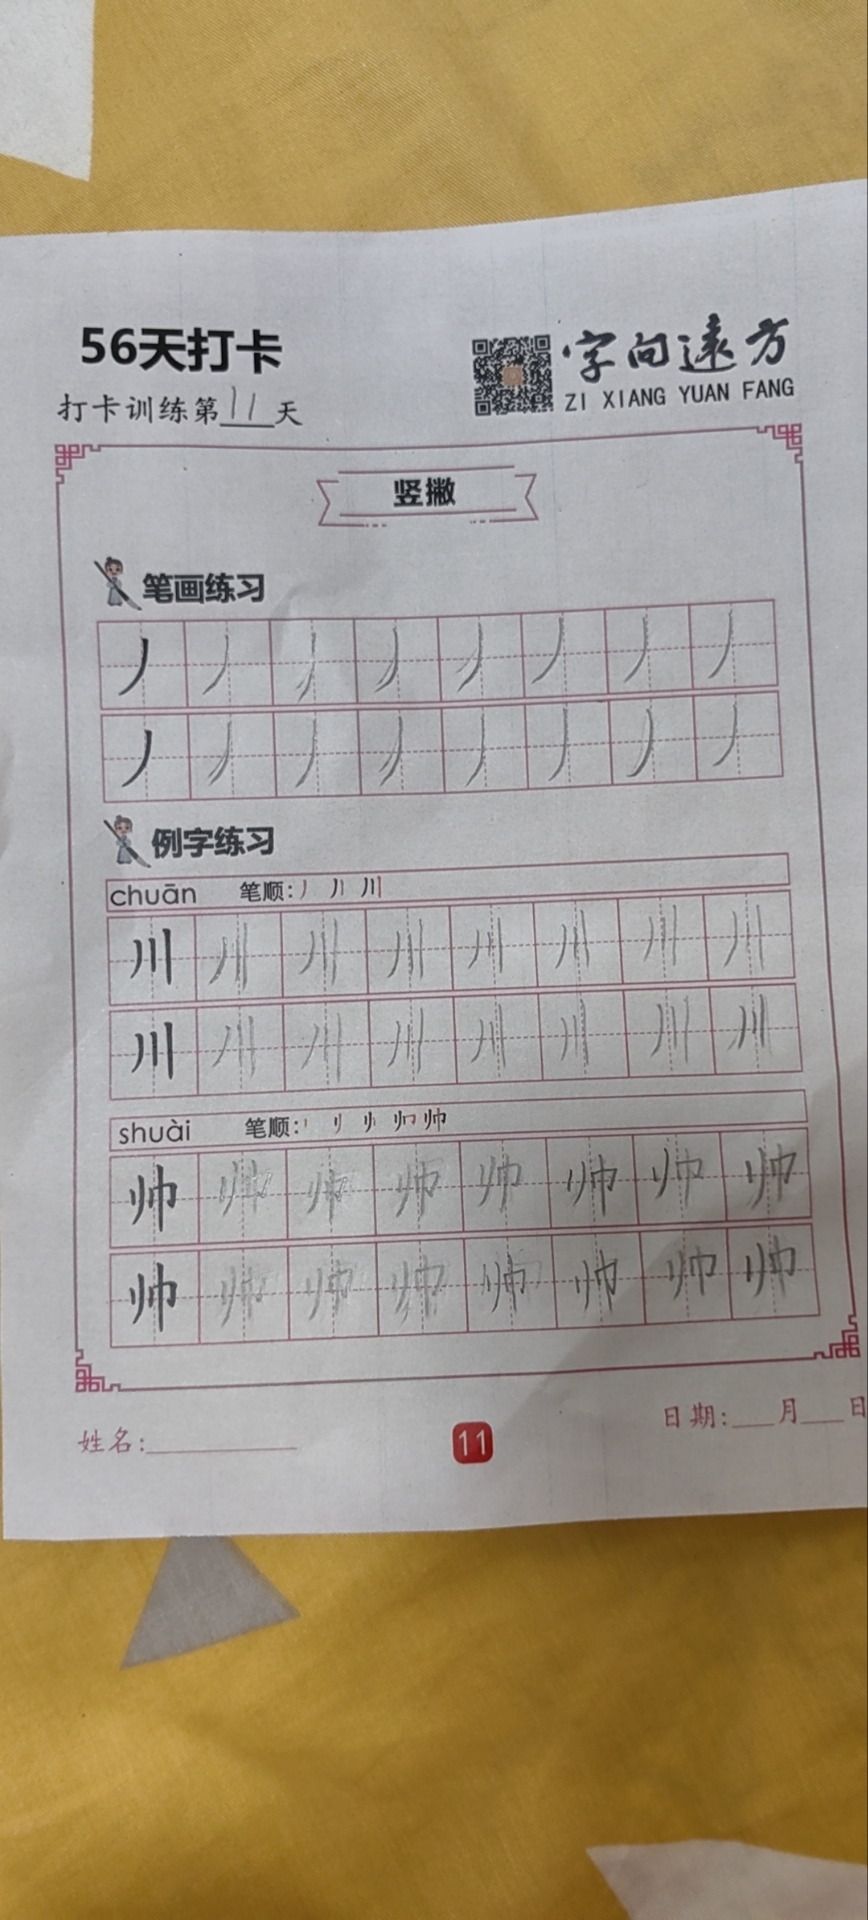 56天打卡
打卡训练第11天
字向遠方
ZI XIANG YUAN FANG
竖撇
笔画练习
丿 丿 丿 丿 丿 丿 丿 丿
丿 丿 丿 丿 丿 丿 丿 丿
例字练习
chuān 笔顺:丿 丿丨 川
川 川 川 川 川 川 川 川
川 川 川 川 川 川 川 川
shuài 笔顺: 帅
帅 帅 帅 帅 帅 帅 帅 帅
帅 帅 帅 帅 帅 帅 帅 帅
姓名:
11
日期:___月___日